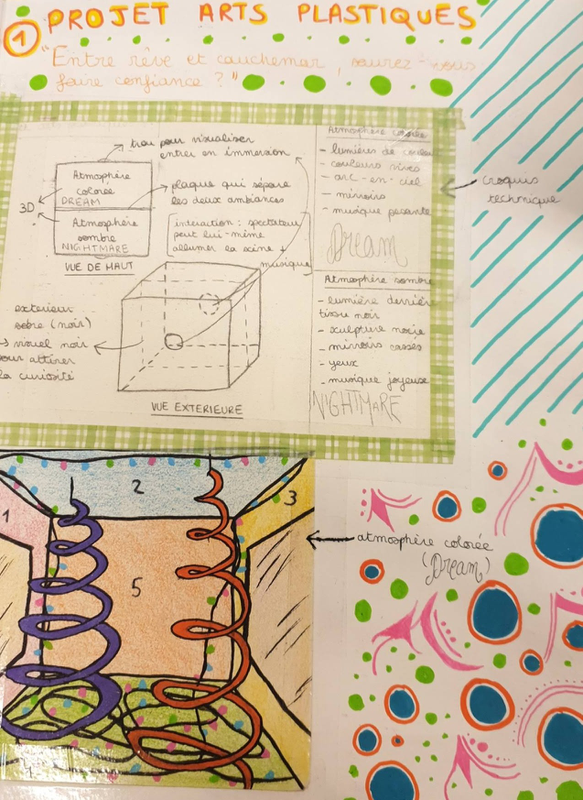 1 PROJET ARTS PLASTIQUES
"Entre rêve et cauchemar, saurez-vous
faire confiance ?"
trou pour visualiser
entrer en immersion
Atmosphère
colorée
DREAM
Atmosphère
sombre
NIGHTMARE
3D
VUE DE HAUT
plaque qui sépare
les deux ambiances
interaction : spectateur
peut lui-même
allumer la scène +
musique
exterieur
sobre (noir)
→ visuel noir
pour attirer
la curiosité
VUE EXTERIEURE
Atmosphère colorée
- lumières de couleur
- couleurs vives
- arc-en-ciel
- miroirs
- musique pesante
Dream
Atmosphère sombre
- lumière derrière
tissu noir
- sculpture noire
- mirroirs cassés
- yeux
- musique joyeuse
NIGHTMARE
croquis
technique
1
2
3
4
5
atmosphère colorée
(Dream)